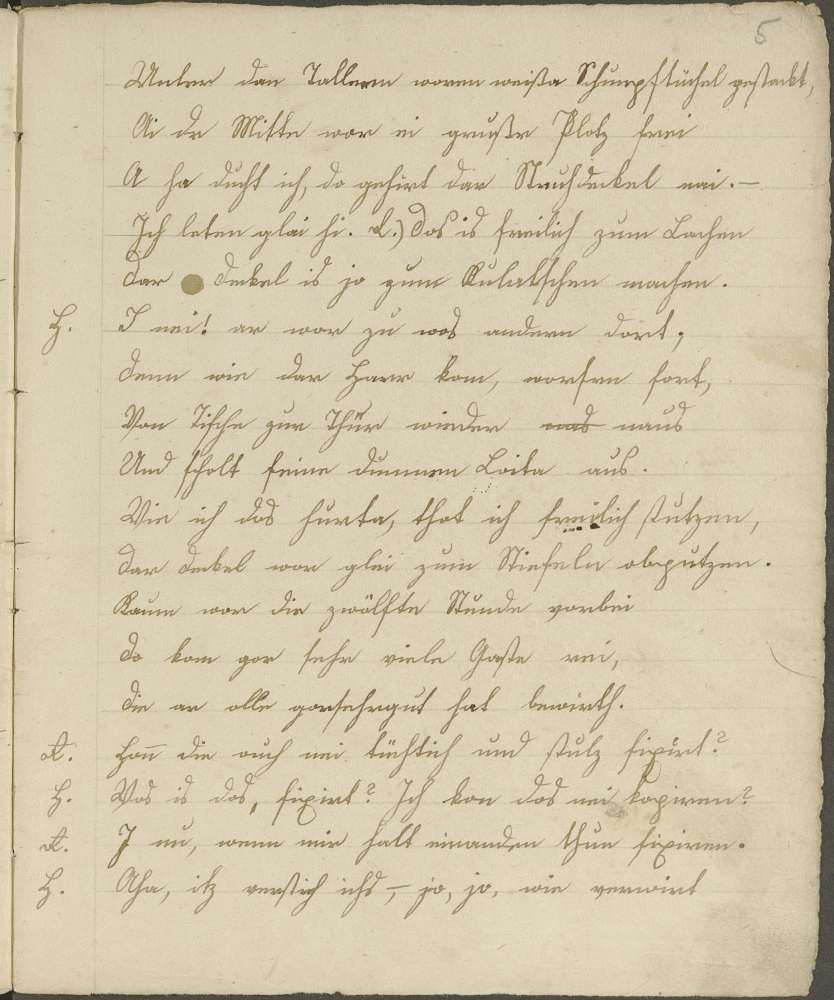 5
Unter dan Tallern woren weißa Schnupftüchel gestackt,
Ai dr Mitte wor ei grußr Plotz frei
A ha ducht ich, do gehirt dar Struhdeckel nai. —
Ich leten glai hi. L.) Dos is freilich zum Lachen
Dar Deckel is jo zum Kulatschen machen.
H. I nei! ar wor zu wos andern dort,
Denn wie dar Harr kom, worfrn fort,
Von Tische zur Thür wieder naus naus
Und scholt seine dummen Loita aus.
Wie ich dos hurta, that ich freilich stutzen,
Dar Deckel wor glei zum Stiefeln obputzen.
Kaum wor die zwölfte Stunde vorbei
Do kom gor sehr viele Gaste rei,
Die ar olle gorsehrgut hat bewirth.
L. Hon̄ die auch nei tüchtich und stulz fixirt?
H. Wos is dos, fixirt? Ich kon dos nei kapiren?
L. I nu, wenn mir halt einanden thun fixiren.
H. Aha, itz verstich ichs, — jo, jo, wie verwirt